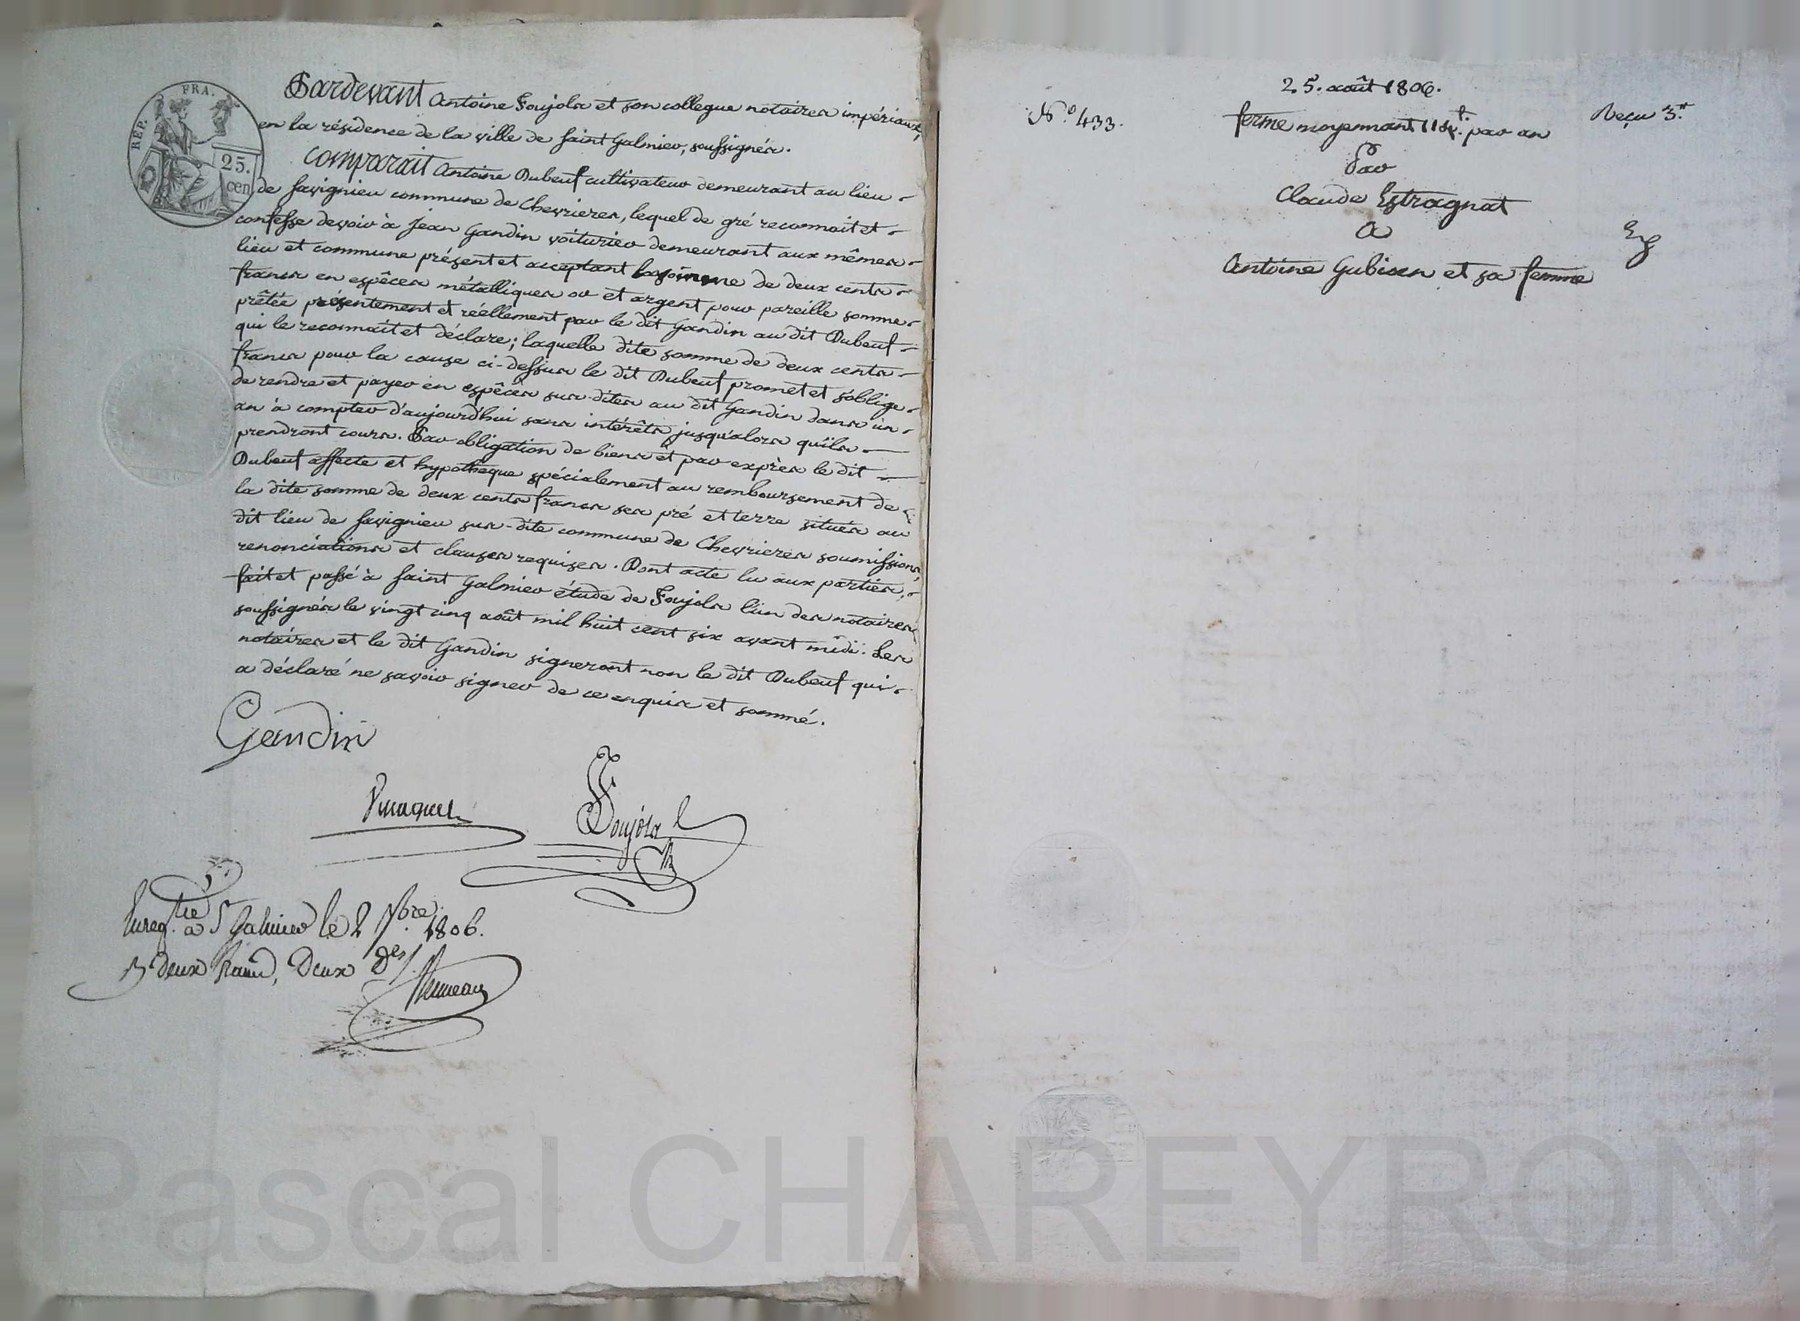 REP. FRA.
25.
cen
Pardevant Antoine Poujols et son collegue notaires impériaux,
en la résidence de la ville de saint Galmier, soussignés.
Comparait Antoine Dubeuf cultivateur demeurant au lieu
de savignieu commune de Chevrieres, lequel de gré reconnait et
confesse devoir à Jean Gandin voiturier demeurant aux mêmes
lieu et commune présent et acceptant la somme de deux cents
francs en espêces métalliques or et argent pour pareille somme
prêtée présentement et réellement par le dit Gandin au dit Dubeuf
qui le reconnait et déclare ; laquelle dite somme de deux cents
francs pour la cause ci-dessus le dit Dubeuf promet et s'oblige
de rendre et payer en espêces sus-dites au dit Gandin dans un
an à compter d'aujourd'hui sans intérêts jusqu'alors qu'ils
prendront cours. Par obligation de biens et par exprès le dit
Dubeuf affecte et hypothèque spécialement au remboursement de
la dite somme de deux cents francs ses pré et terre situés au
dit lieu de savignieu sus-dite commune de Chevrieres soumissions,
renonciations et clauses requises. Dont acte lu aux parties,
fait et passé à saint Galmier étude de Poujols l'un des notaires
soussignés le vingt cinq août mil huit cent six avant midi. Les
notaires et le dit Gandin signeront non le dit Dubeuf qui
a déclaré ne savoir signer de ce enquis et sommé.
Gandin
Poujols
Enreg.tré à St Galmier le 2 7bre. 1806.
R deux francs, Deux des/.
25. août 1806.
N.o 433.
ferme moyennant 118.tt par an
Reçu 3.tt
Par
Claude Estragnat
A
Antoine Gubien et sa femme
Pascal CHAREYRON